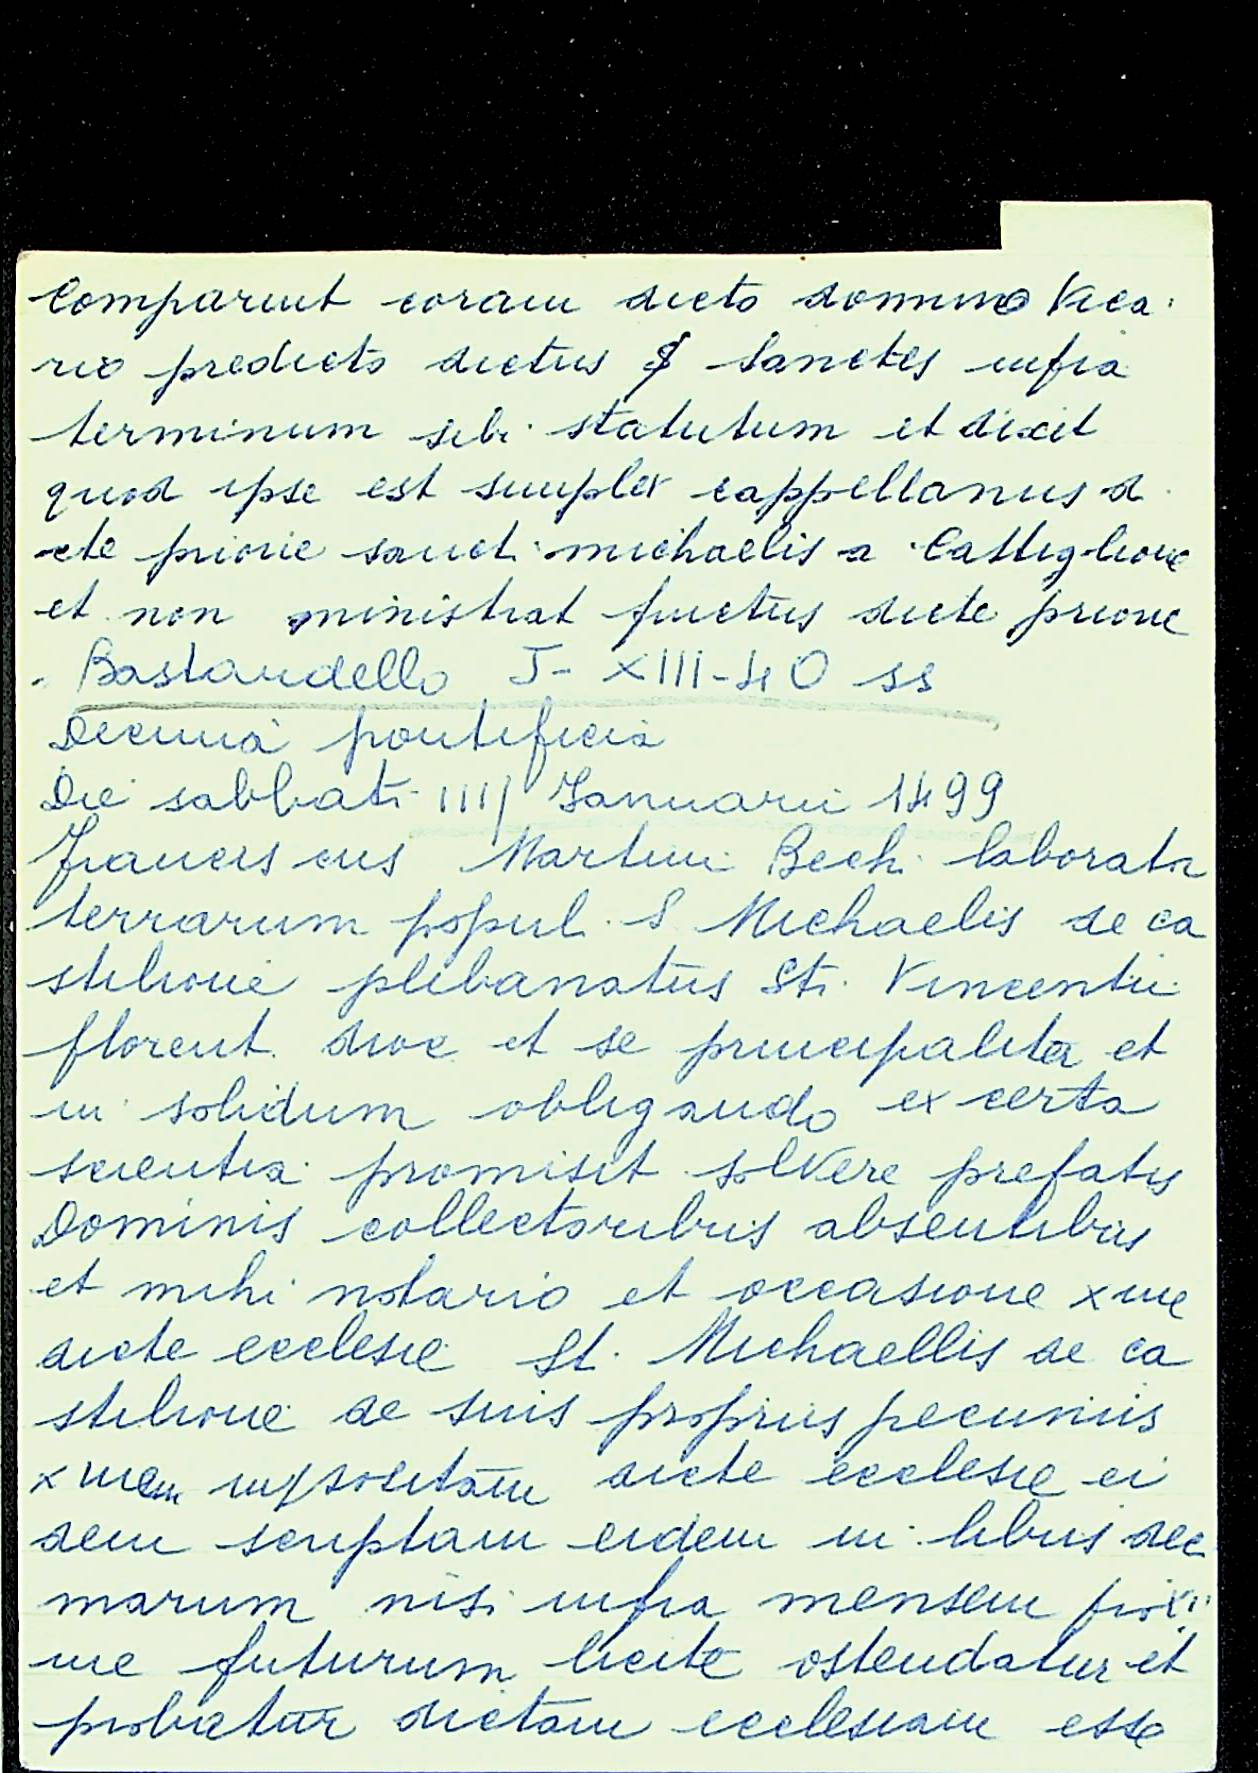 Comparuit coram dicto domino Vica
rio predicto dictus S Sanctes infra
terminum sibi statutum et dixit
quod ipse est simplex cappellanus d
cte priorie sancti michaelis a Castiglione
et non ministrat fructus dicte priorie
Bastardello J- XIII-40 ss
Decima pontificia
Die sabbati IIII Januarii 1499
Franciscus Martini Bech. laborator
terrarum popul. S Michaelis de ca
stilione plebanatus Sti. Vincentii
florent. dioc et se principaliter et
in solidum obligando ex certa
scientia promisit solvere prefatis
Dominis collectoribus absentibus
et mihi notario et occasione xme
dicte ecclesie St. Michaellis de ca
stilione de suis propriis pecuniis
xmem impositam dicte ecclesie ei
dem scriptam eidem in libris dec
marum nisi infra mensem proxi
me futurum licite ostendatur et
probatur dictam ecclesiam esse